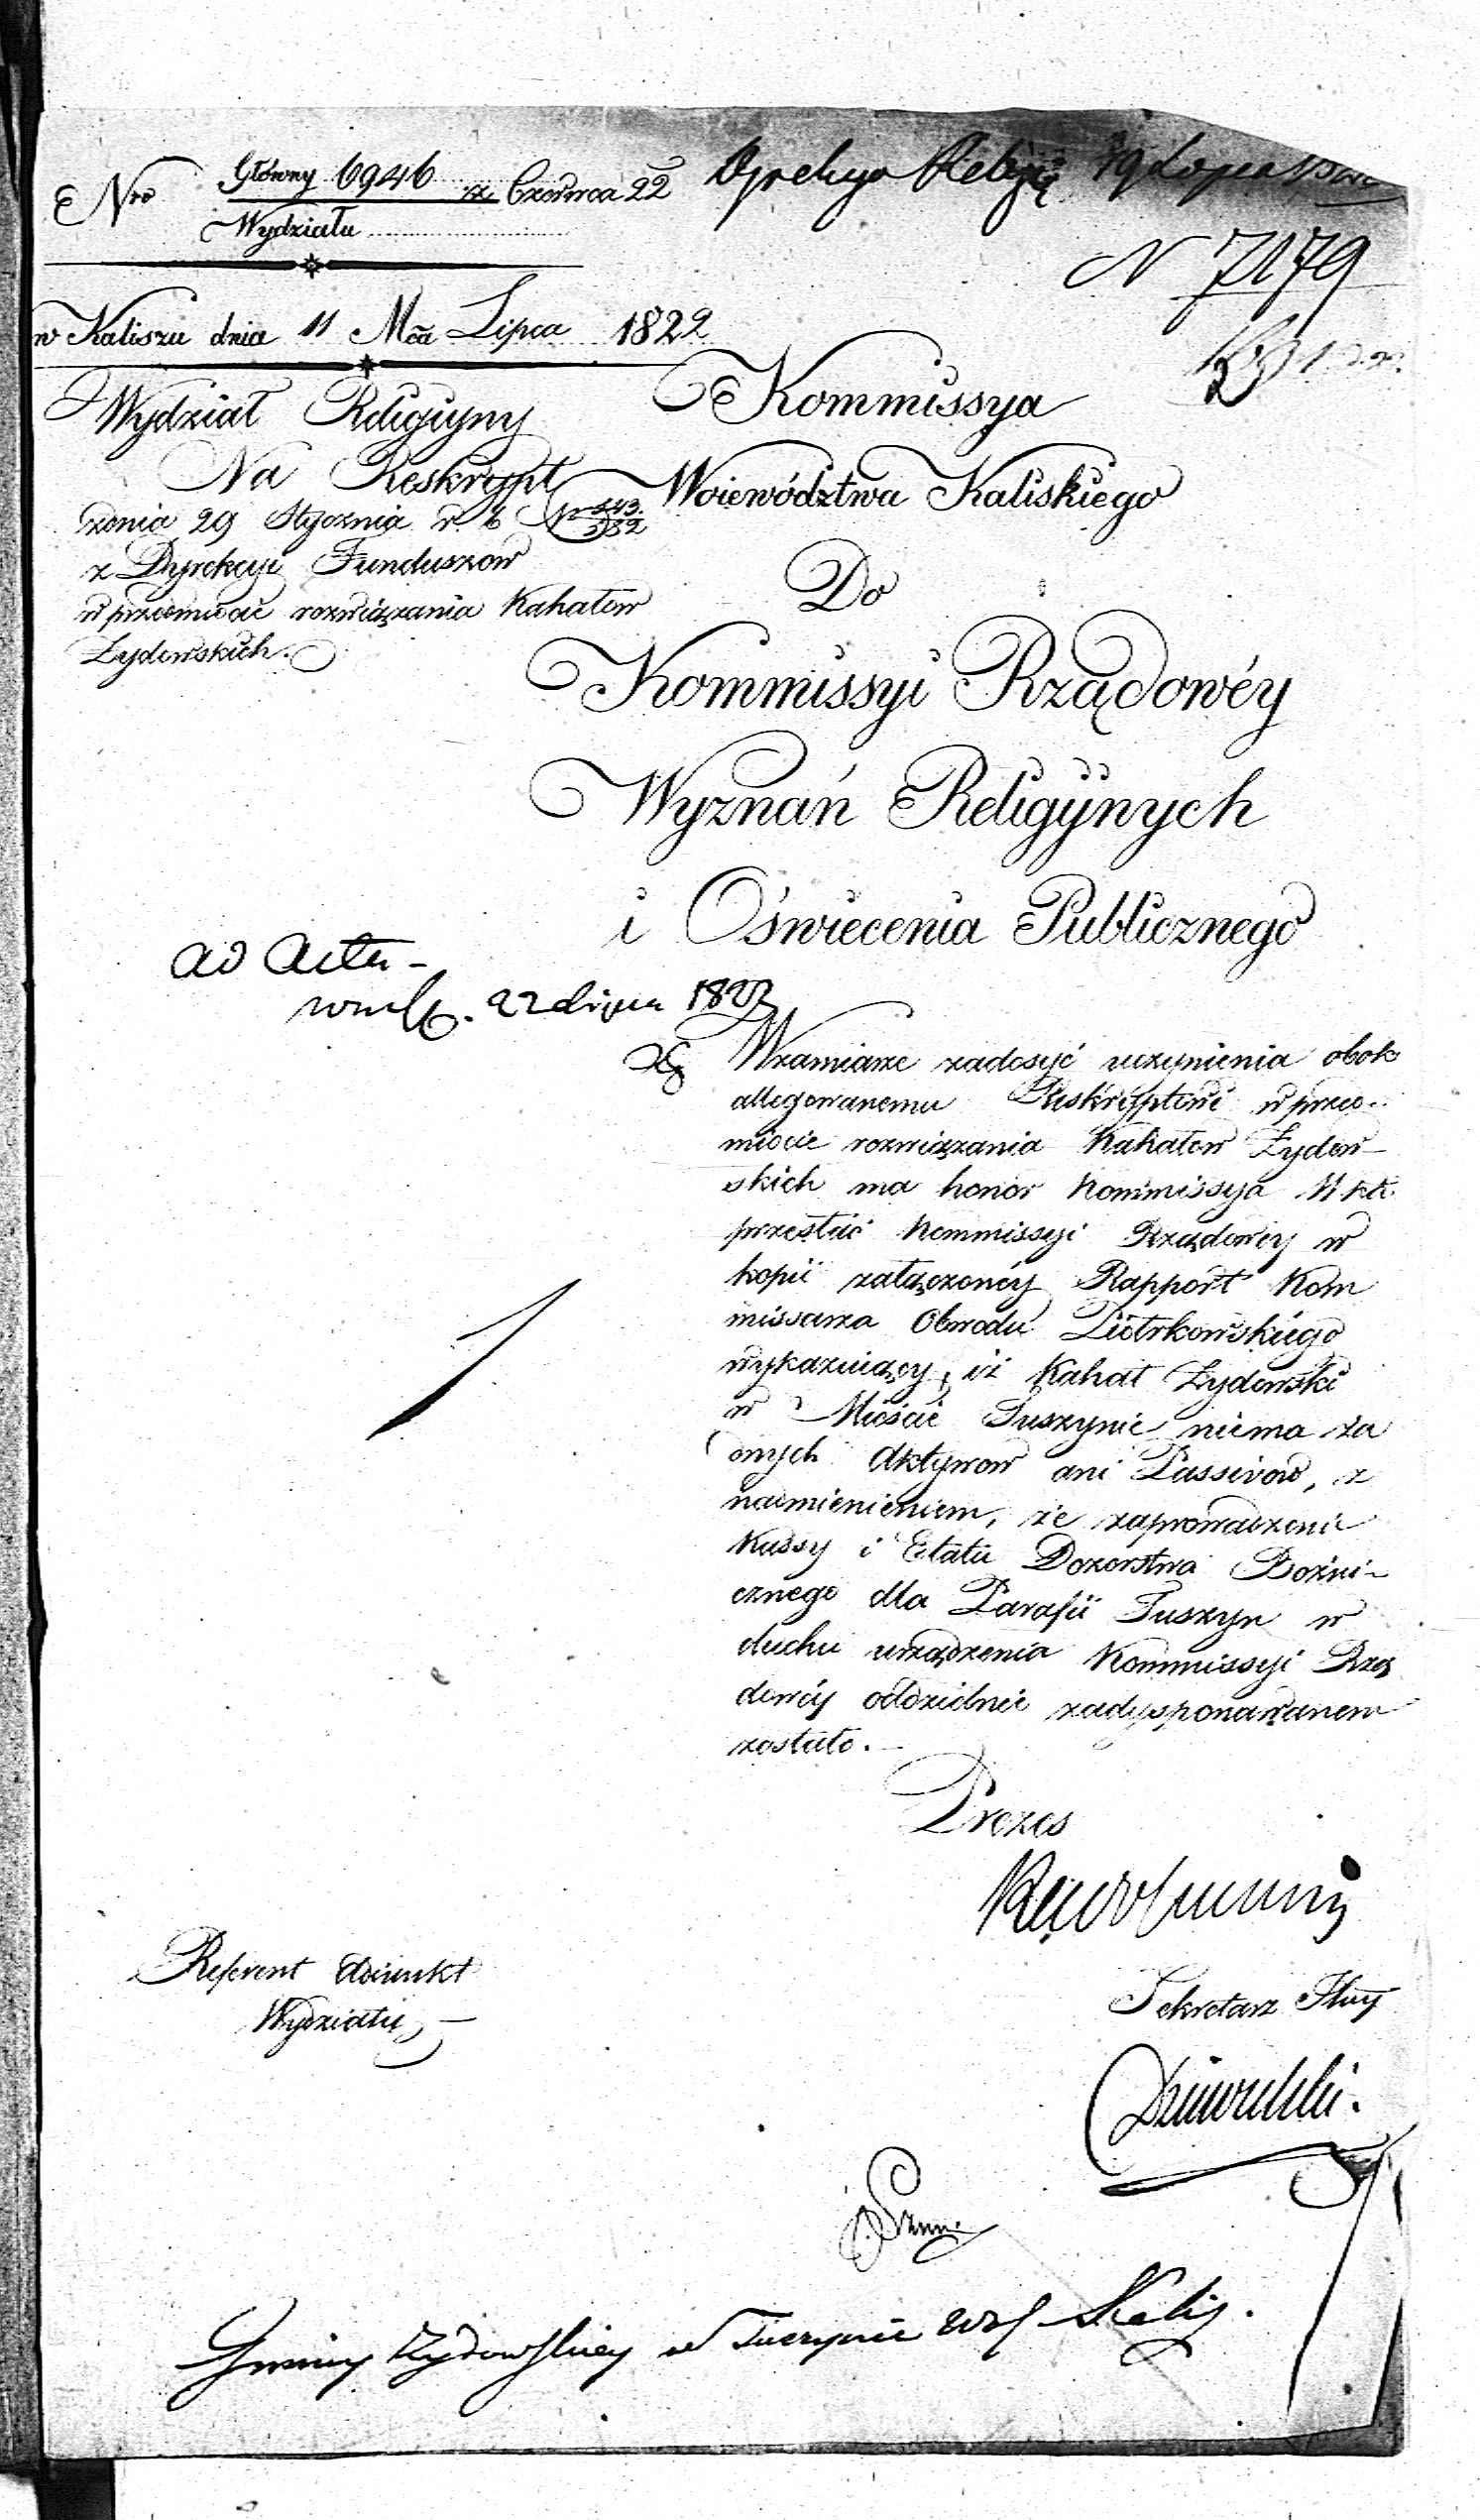 Nro Główny 6946 z Czerwca 22
Wydziału
w Kaliszu dnia 11 Mca Lipca 1822
N 7179
Wydział Religijny
Na Reskrypt
zdnia 29 Stycznia r. b. Nr 443/132
z Dyrekcyi Funduszow
w przedmiocie rozwiązania Kahałow
Żydowskich.
Kommissya
Woiewództwa Kaliskiego
Do
Kommissyi Rządowéy
Wyznań Religijnych
i Oświecenia Publicznego
ad Acta
22 Lipca 1822
Wzamiarze zadosyć uczynienia obok
allegowanemu Reskryptowi w przed-
miocie rozwiązania Kahałow Żydow-
skich ma honor Kommissya Wka
przesłać Kommissyi Rządowéy w
kopii załączonéy Rapport Kom
missarza Obwodu Piotrkowskiego
wykazuiący, iż Kahał Żydowski
w Mieście Tuszynie niema ża
dnych Aktywow ani Passivow, z
nadmienieniem, że zaprowadzenie
Kassy i Etatu Dozorstwa Bożni-
cznego dla Parafii Tuszyn w
duchu urządzenia Kommissyi Rzą
dowéy oddzielnie zadysponowanem
zostało.
Prezes
Sekretarz Jlny
Referent Adiunkt
Wydziału
Gminy Żydowskiey w Tuszynie Wdz Kalis.